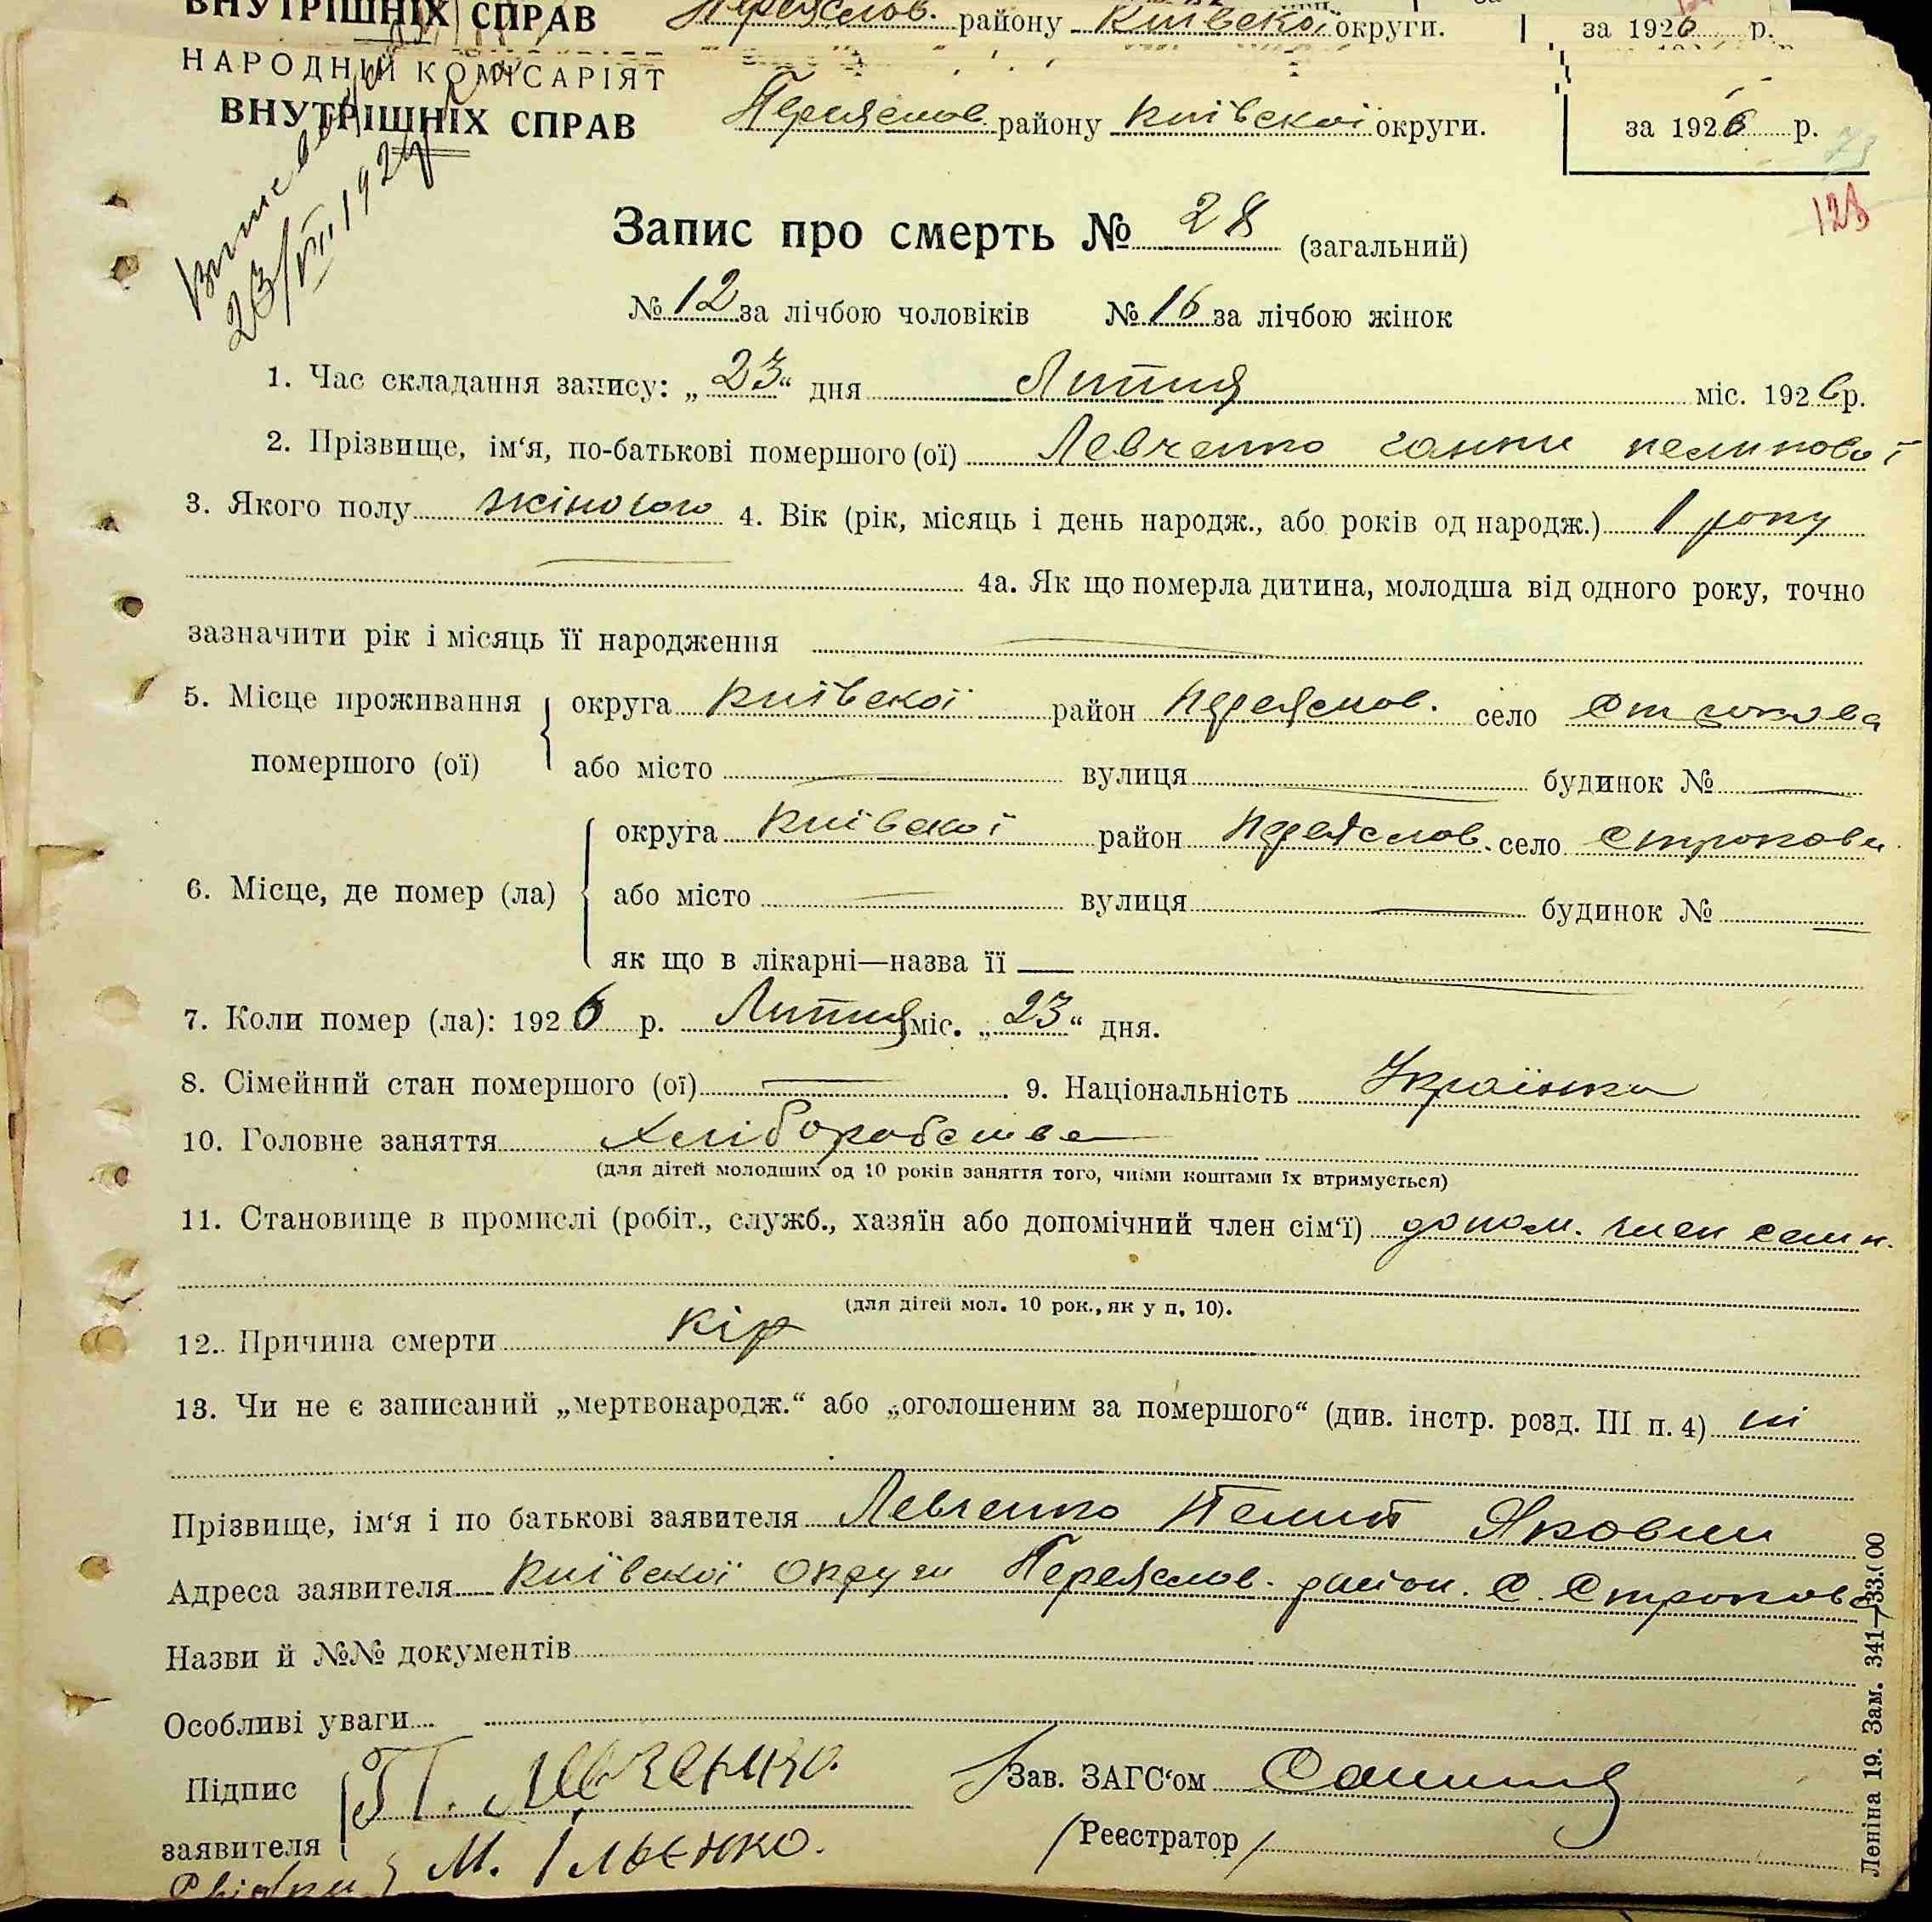 ВНУТРІШНІХ СПРАВ Переяслов. району Київской округи. за 1926 р.
НАРОДНИЙ КОМІСАРІЯТ
ВНУТРІШНІХ СПРАВ Переяслов. району Київської округи. за 1926 р.
73
123
23/VII 192
Запис про смерть № 28 (загальний)
№ 12 за лічбою чоловіків № 16 за лічбою жінок
1. Час складання запису: „23“ дня Липня міс. 1926 р.
2. Прізвище, ім‘я, по-батькові помершого (ої) Левченко ганни пелипової
3. Якого полу жіночого 4. Вік (рік, місяць і день народж., або років од народж.) 1 року
4а. Як що померла дитина, молодша від одного року, точно
зазначити рік і місяць її народження
5. Місце проживання округа Київскої район Переяслов. село
помершого (ої) або місто вулиця будинок №
округа Київскої район Переяслов. село Строкова
6. Місце, де помер (ла) або місто вулиця будинок №
як що в лікарні—назва її
7. Коли помер (ла): 1926 р. Липня міс. „23“ дня.
8. Сімейний стан помершого (ої) 9. Національність Українка
10. Головне заняття Хліборобство
(для дітей молодших од 10 років заняття того, чиїми коштами їх втримується)
11. Становище в промислі (робіт., служб., хазяїн або допомічний член сім‘ї) допом. член семи.
(для дітей мол. 10 рок., як у п. 10).
12. Причина смерти Кір
13. Чи не є записаний „мертвонародж.“ або „оголошеним за помершого“ (див. інстр. розд. III п. 4) ні
Прізвище, ім‘я і по батькові заявителя Левченко Пелип Якович
Адреса заявителя Київскої округи Переяслов. район. С. Строкова
Назви й №№ документів
Особливі уваги
Підпис П. Левченко. Зав. ЗАГС‘ом
заявителя (Реєстратор)
М. Ільєнко.
Леніна 19. Зам. 341—33.000